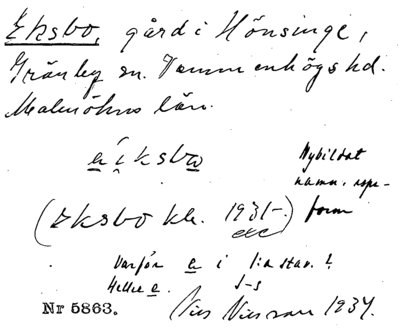 Eksbo, gård i Hönsinge,
Gränby sn. Vemmenhögs hd.
Malmöhus län.
e i ksbω
Nybildat
namn.
(Eksbo kk. 1931-) form
etc
Varför e i 1:a stav. ?
Heller e.
Nr 5863. Nils Nilsson 1937.